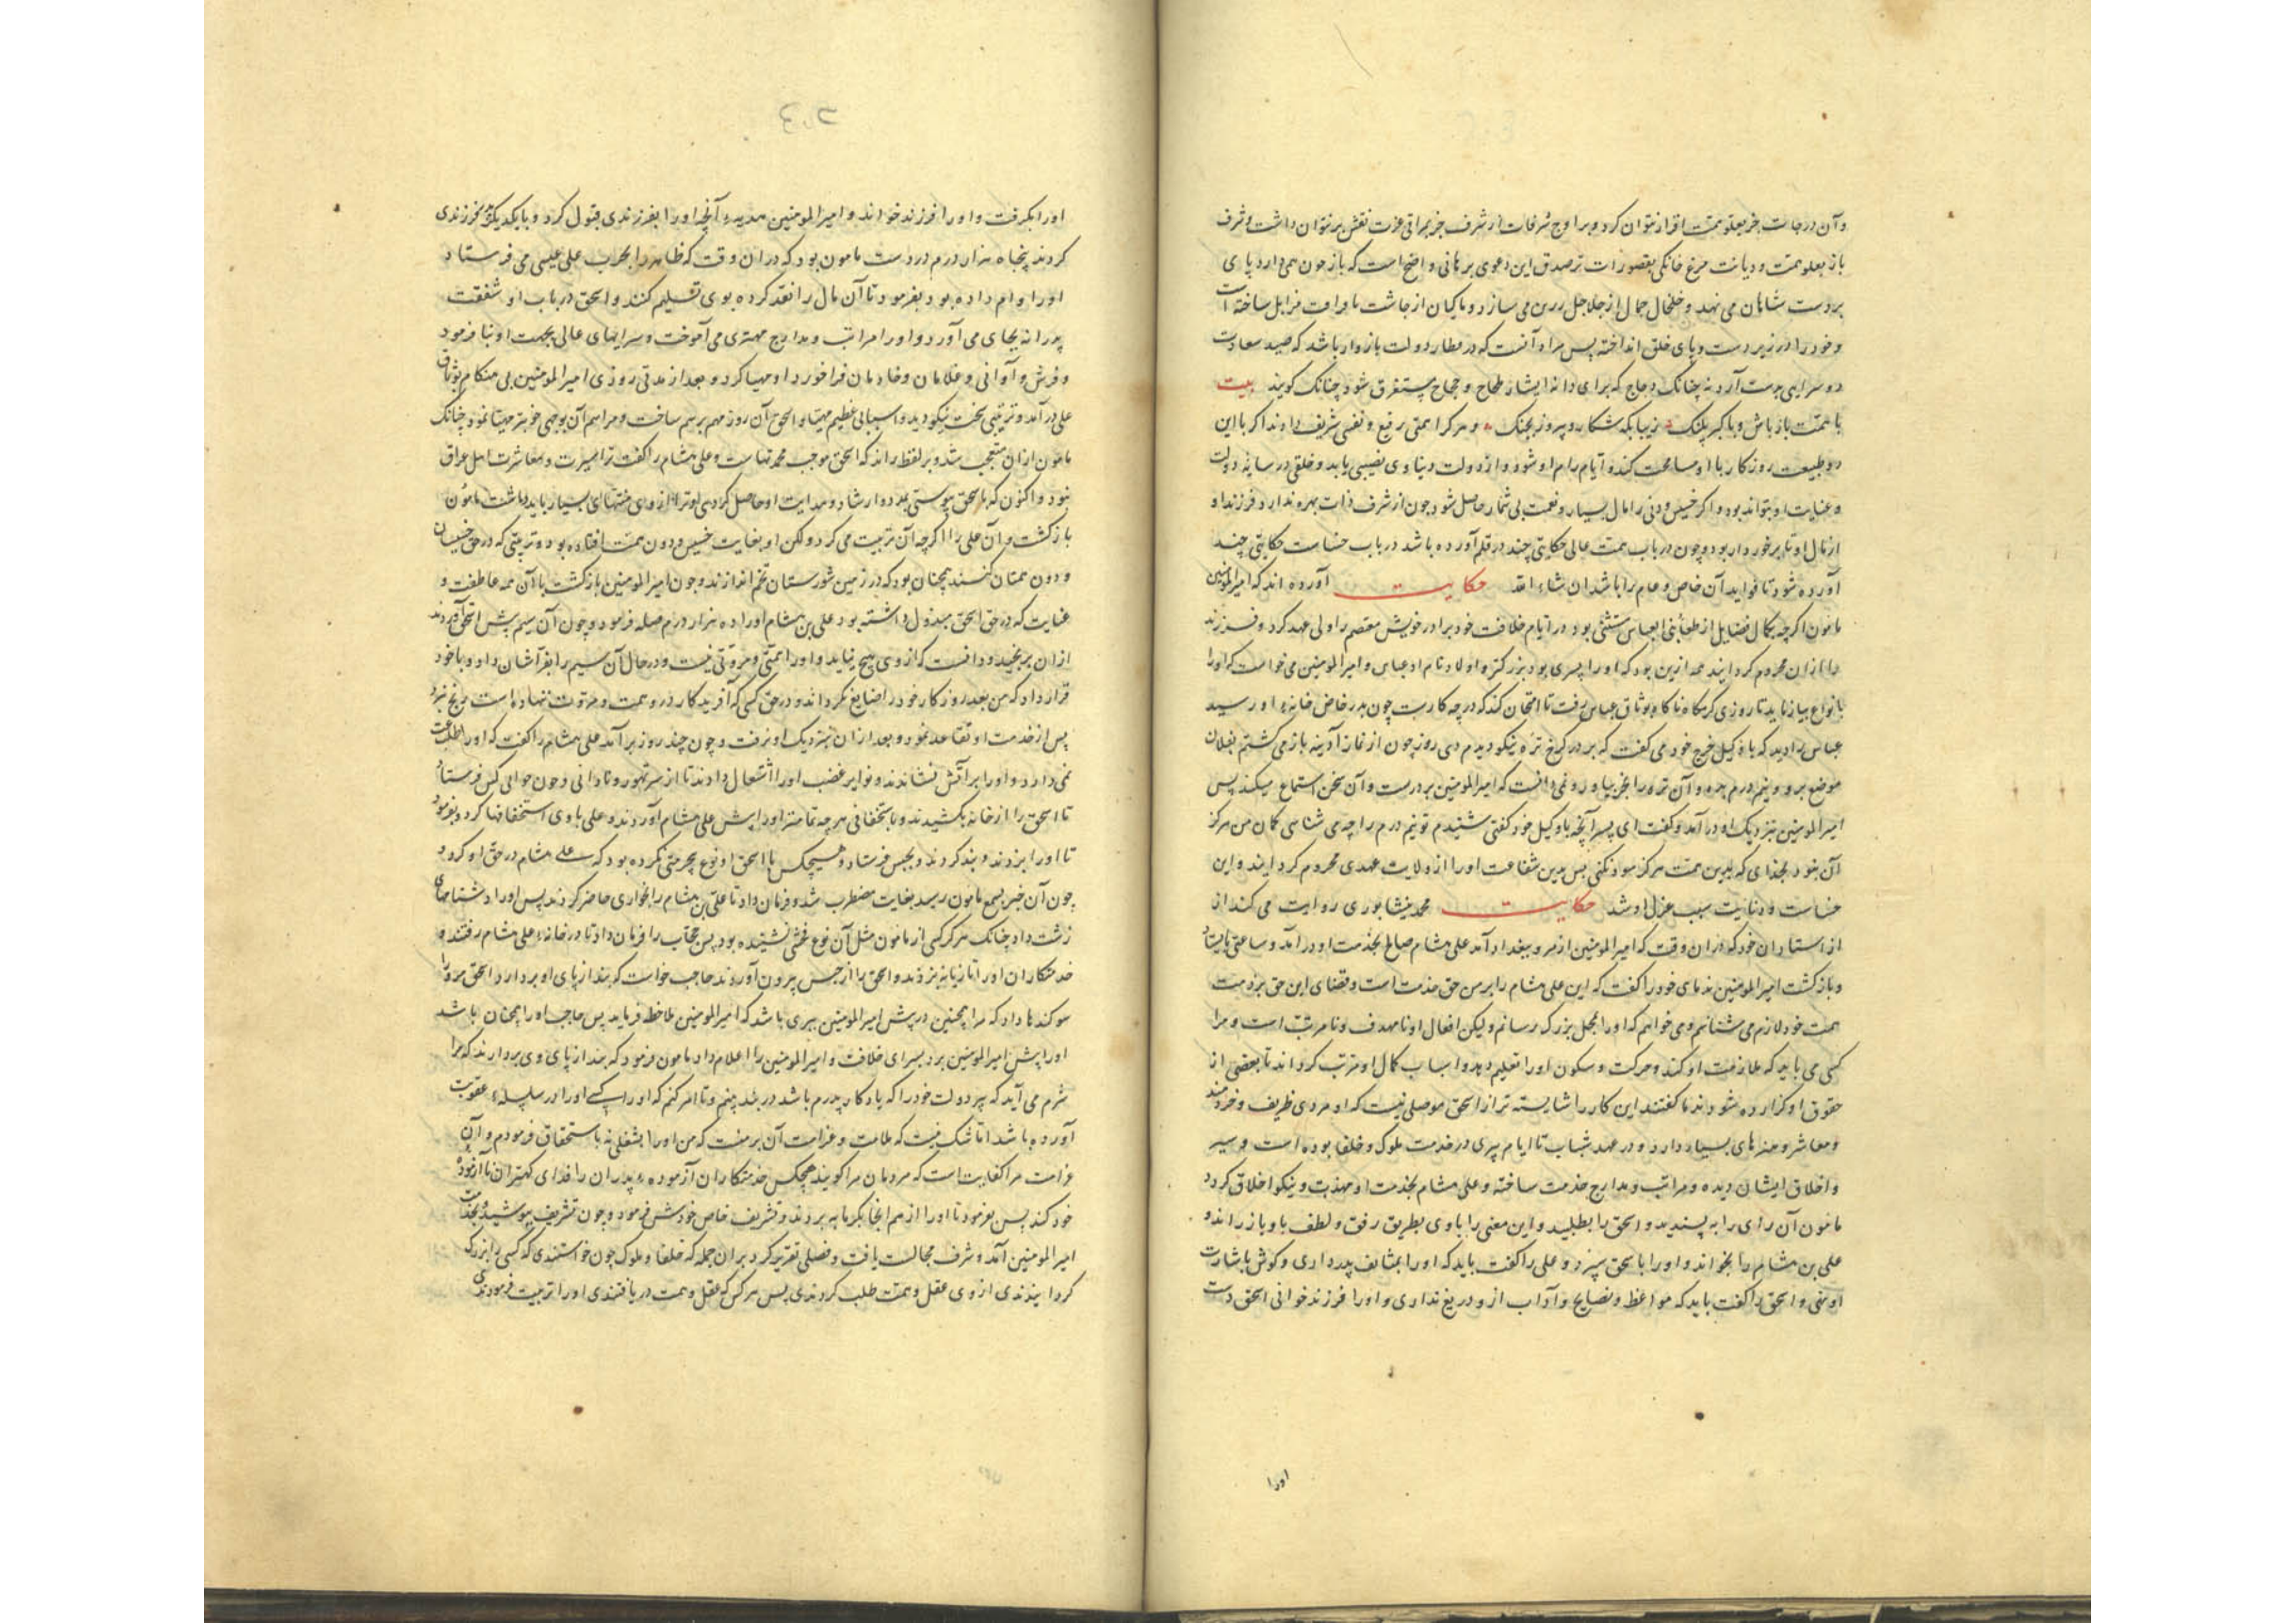 وآن درجات جز بعلو همت افراز نتوان کرد و بر اوج شرفات از شرف جز براتی عزت نقش بر نتوان داشت و شرف
باز بعلو همت و دیانت مرغ خانگی بقصور ذات بر صدق این دعوی برهانی واضح است که باز چون همی دارد پای
بر دست شاهان می نهد و خلخال جمال از جلاجل زرین می سازد و ماکیان از مزابل ساخته است
و خود را در زیر دست و پای خلق انداخته پس مراد آنست که در مطار دولت باز وار باشد که صید سعادت
دو سرایی بدست آرد نه چنانک دجاج که برای دانه ایشار پستغرق شود چنانک کویند بیت
با همت باز باش و با کبر پلنک زیبا بکه شکار و پیروز بجنک و هر کرا همتی رفیع و نفسی شریف دادند اکر با این
دو طبیعت روزکار با او مسامحت کند و ایام رام او شود و از دولت دنیاوی نصیبی یابد و خلقی در سایه دولت
و عنایت او بتواند بود و اکر خسیس و دنی را مال بسیار و نعمت بی شمار حاصل شود چون از شرف ذات بهره ندارد فرزند او
از مال او تا برخوردار بود و چون در باب همت عالی حکایتی چند در قلم آورده باشد در باب خساست حکایتی چند
آورده شود تا فواید آن خاص و عام را باشد ان شاء الله حکایت آورده اند که امیرالمومنین
مامون اکرچه بکمال فضایل از خلفا بنی العباس مستثنی بود در ایام خلافت خود برادر خویش معتصم را ولی عهد کرد و فرزند
را ازان محروم کردانید عمه ازین بود که او را پسری بود بزرکتر و اولاد نام او عباس و امیرالمومنین می خواست که او را
بانواع بیازماید تا روزی کرمکاه ناکاه بوثاق عباس رفت تا امتحان کند که در چه کارست چون بدر خاص خانه او رسید
عباس را دید که با وکیل خرج خود می کفت که بر در کرخ تره نیکو دیدم دی روز چون از نماز آدینه باز می کشتم بفلان
موضع برو و نیم درم بده و آن تره را بخر بیاور و نمی دانست که امیرالمومنین بر درست و آن سخن استماع میکند پس
امیرالمومنین بنزدیک او در آمد و کفت ای پسر آنچه با وکیل خود کفتی شنیدم تو نیم درم را چه می شناسی کمان من هرکز
آن بنود بخدای که بدین همت هرکز سود نکنی پس بدین شفاعت او را از ولایت عهدی محروم کردانید و این
خساست و دنایت سبب عزل او شد حکایت محمد نیشابوری روایت می کند از
از استادان خود که دران وقت که امیرالمومنین از مرو ببغداد آمد علی هشام صباح بخدمت او در آمد و ساعتی بایستاد
و بازکشت امیرالمومنین ندمای خود را کفت که این علی هشام را بر من حق خدمت است و قضای این حق بر ذمت
همت خود لازم می شناسم و می خواهم که او را بمحل بزرک رسانم ولیکن افعال او نا مهذب و نا مرتب است و مرا
کسی می باید که ملازمت او کند و حرکت و سکون او را تعلیم دهد و اسباب کمال او مرتب کرداند تا بعضی از
حقوق او کزارده شود ندما کفتند این کار را شایسته تر از اسحق موصلی نیست که او مردی ظریف و خردمند
و معاشر و هنرهای بسیار دارد و در عهد شباب تا ایام پیری در خدمت ملوک و خلفا بوده است و سیر
و اخلاق ایشان دیده و مراتب و مدارج خدمت ساخته و علی هشام بخدمت او مهذب و نیکو اخلاق کردد
مامون آن رای را به پسندید و اسحق را بطلبید و این معنی را با وی بطریق رفق و لطف با او باز راند و
علی بن هشام را بخواند و او را باسحق سپرد و علی را کفت باید که او را بمثابت پدر داری و کوش باشارت
او نهی و اسحق را کفت باید که مواعظ و نصایح و آداب ازو دریغ نداری و او را فرزند خوانی اسحق دست
اورا
او را بکرفت و او را فرزند خواند و امیرالمومنین هدیه آنچه او را بفرزندی قبول کرد و با یکدیکر فرزندی
کردند پنجاه هزار درم در دست مامون بود که دران وقت که طاهر را بحرب علی عیسی می فرستاد
او را وام داده بود بفرمود تا آن مال را نقد کرده بوی تسلیم کنند و اسحق در باب او شفقت
پدرانه بجای می آورد و او را مراتب و مدارج مهتری می آموخت و سرایهای عالی بجهت او بنا فرمود
و فرش و آوانی و غلامان و خادمان فراخور داو مهیا کرد و بعد از مدتی روزی امیرالمومنین بی هنکام بوثاق
علی در آمد و ترتیبی سخت نیکو دید و اسبابی عظیم مهیا و اسحق آن روز مهم بر هم ساخت و مراسم آن بوجهی خوبتر مهیا نمود چنانک
مامون ازان متعجب شد و بر لفظ راند که اسحق موجب محمدتهاست و علی هشام را کفت ترا سیرت و معاشرت اهل عراق
نبود و اکنون که باسحق پیوستی بمدد ارشاد و هدایت او حاصل کردی او ترا از وی منتهای بسیار باید داشت مامون
بازکشت و آن علی را اکرچه آن تربیت می کرد ولکن او بغایت خسیس و دون همت افتاده بود و تربیتی که در حق خسیسان
و دون همتان کنند همچنان بود که در زمین شورستان تخم اندازند و چون امیرالمومنین بازکشت با آن همه عاطفت و
عنایت که در حق اسحق مبذول داشته بود علی بن هشام او را ده هزار درم صله فرمود و چون آن سیم پیش اسحق آوردند
ازان برنجید و دانست که از وی هیچ نیاید و او را همتی و مروتی نیست و در حال آن سیم را بفرآشان داد و با خود
قرار داد که من بعد روزکار خود را ضایع نکرداند و در حق کسی که آفریدکار درو همت و مروت ننهاده است رنج نبرد
پس از خدمت او تقاعد نمود و بعد ازان بنزدیک او نرفت و چون چند روز برآمد علی هشام را کفتند که او را طاعت
نمی دارد و او را بر آتش نشاندند و نوایر غضب او را اشتعال دادند تا از سر تهور و نادانی و دون حوالی کس فرستاد
تا اسحق را از خانه بکشیدند و باستخفافی هرچه تمامتر او را پیش علی هشام آوردند و علی با وی استخفافها کرد و بفرمود
تا او را بزدند و بند کردند و بحبس فرستاد و هیچکس با اسحق او نوع بیحرمتی نکرده بود که علی هشام در حق او کرد و
چون آن خبر بسمع مامون رسید بغایت مضطرب شد و فرمان داد تا علی بن هشام را بخواری حاضر کردند پس او را دشنامهای
زشت داد چنانک هرکز کسی از مامون مثل آن نوع فحش نشنیده بود پس حجاب را فرمان داد تا در خانه علی هشام رفتند و
خدمتکاران او را تازیانه بزدند و اسحق را از حبس بیرون آوردند حاجب خواست که بند از پای او بردارد اسحق مر او را
سوکندها داد که مرا همچنین در پیش امیرالمومنین ببری باشد که امیرالمومنین ملاحظه فرماید پس حاجب او را همچنان باشد
او را پیش امیرالمومنین برد بسرای خلافت و امیرالمومنین را اعلام داد مامون فرمود که بند از پای وی بردارند که مرا
شرم می آید که پیر دولت خود را که یادکار پدرم باشد در بند بینم و تا امر کنم که او را او را در سلسله عقوبت
آورده باشد اما شک نیست که ملامت و غرامت آن بر منست که من او را بشغلی نه باستحقاق فرمودم و آن
غرامت مرا کفایت است که مردمان مرا کویند هیچکس خدمتکاران آزموده پدران را فدای کهتران ناآزموده
خود کند پس بفرمود تا او را از هم آنجا بکرمابه بردند و تشریف خاص خودش فرمود و چون تشریف پوشید و بخدمت
امیرالمومنین آمد و شرف مجالست یافت و فصلی تقریر کرد بران جمله که خلفا و ملوک چون خواستندی که کسی را بزرک
کردانیدندی از وی عقل و همت طلب کردندی پس هر کس که عقل و همت دریافتندی او را تربیت فرمودندی